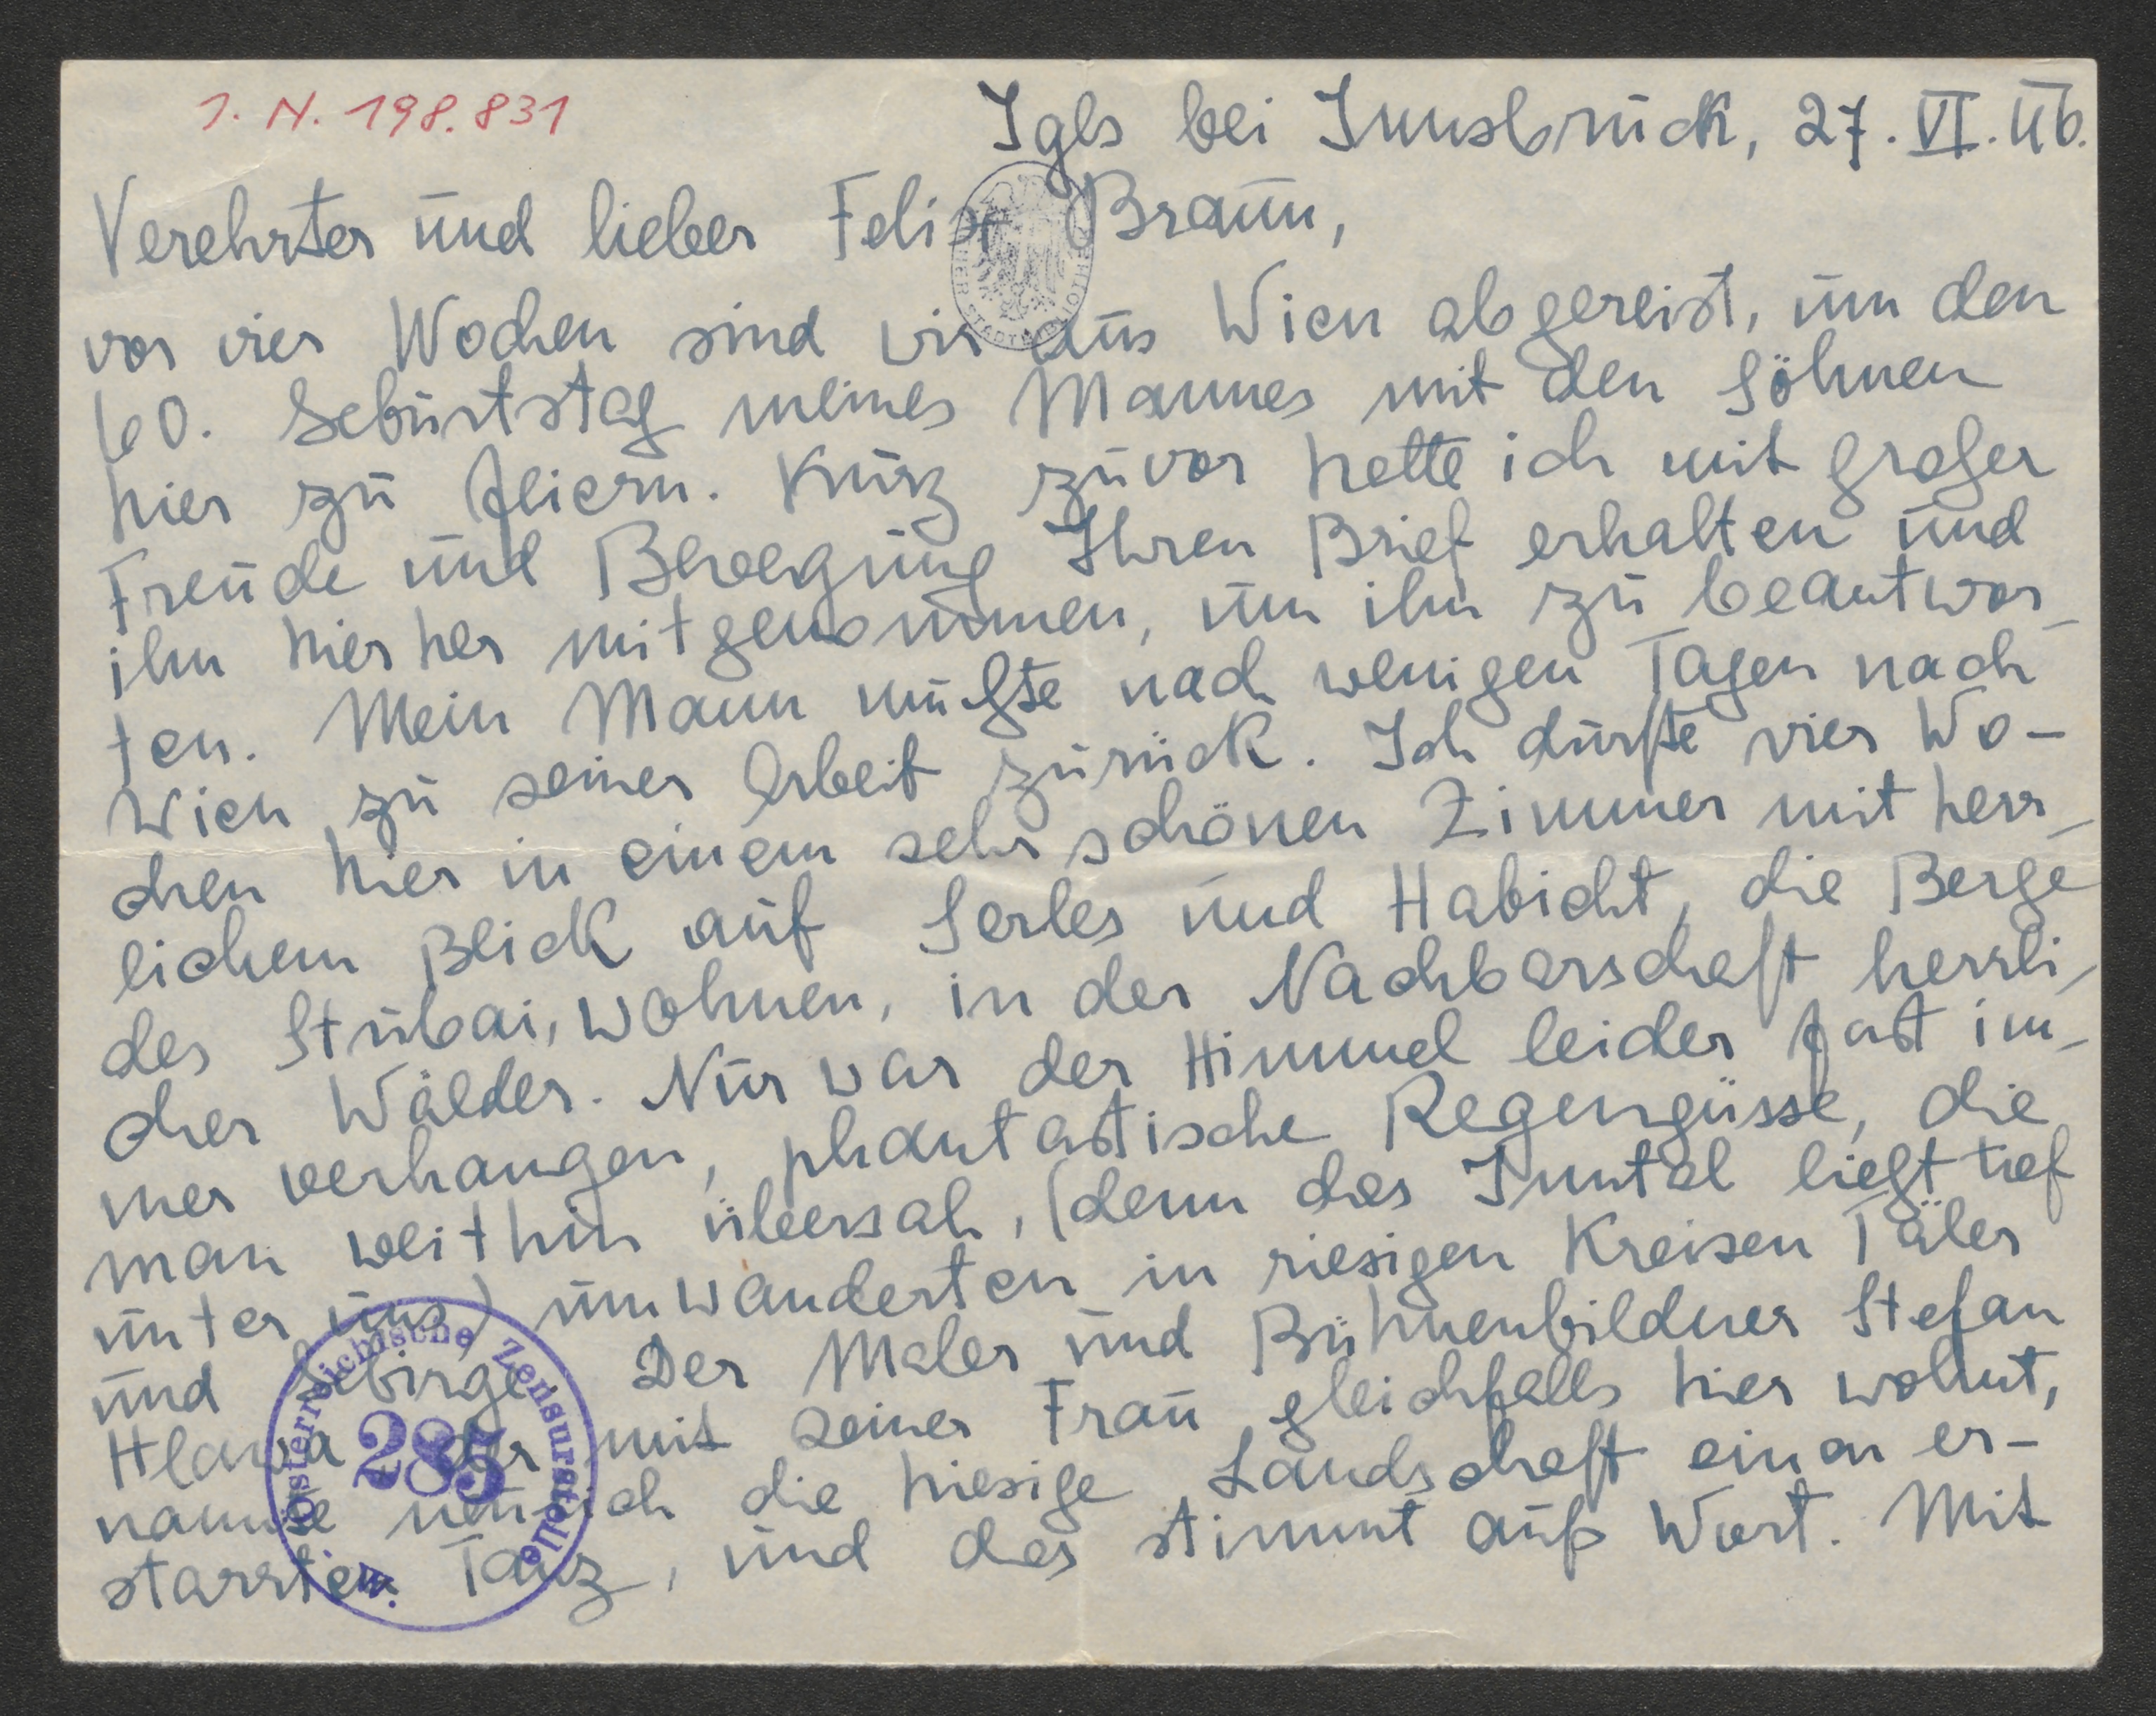 I. N. 198.831
Igls bei Innsbruck, 27. VI. 46.
Verehrter und lieber Felix Braun,
vor vier Wochen sind wir aus Wien abgereist, um den
60. Geburtstag meines Mannes mit den Söhnen
hier zu feiern. Kurz zuvor hatte ich mit großer
Freude und Bewegung Ihren Brief erhalten und
ihn hierher mitgenommen, um ihn zu beantwor-
ten. Mein Mann mußte nach wenigen Tagen nach
Wien zu seiner Arbeit zurück. Ich durfte vier Wo-
chen hier in einem sehr schönen Zimmer mit herr-
lichem Blick auf Serles und Habicht, die Berge
des Stubai, wohnen, in der Nachbarschaft herrli-
cher Wälder. Nur war der Himmel leider fast im-
mer verhangen, phantastische Regengüsse, die
man weithin übersah, (denn das Inntal liegt tief
unter uns) umwanderten in riesigen Kreisen Täler
und Gebirge. Der Maler und Bühnenbildner Stefan
Hlawa, der mit seiner Frau gleichfalls hier wohnt,
nannte neulich die hiesige Landschaft einen er-
starrten Tanz, und das stimmt aufs Wort. Mit
Österreichische Zensurstelle
285
W.